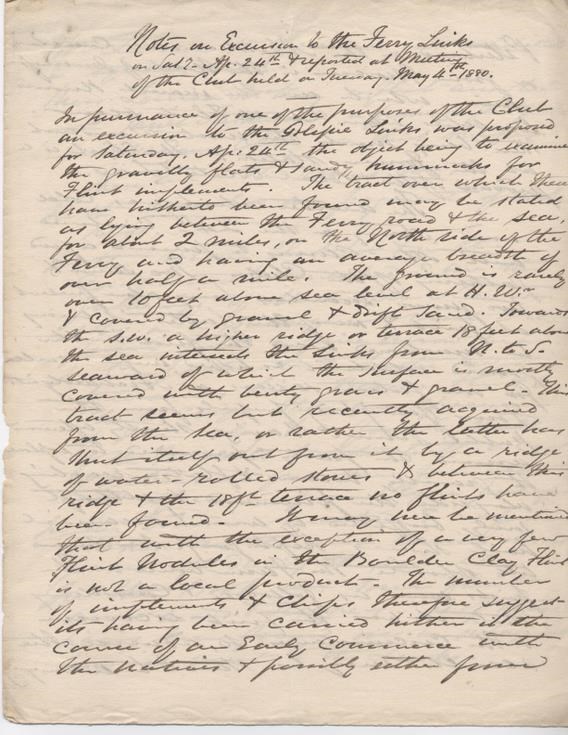 Notes on Excursion to the Ferry Links
on Sat? Ap. 24th & reported at Meeting
of the Club held on Tuesday. May 4th 1880.
In pursuance of one of the purposes of the Club
an excursion to the Links, was proposed
for Saturday, Ap: 24th the object being to examine
the gravilly flats & sandy hummocks for
Flint implements. The tract over which these
have hitherto been found may be stated
as lying between the Ferry road & the sea,
for about 2 miles, on the North side of the
Ferry and having an average breadth of
over half a mile. The ground is rarely
over 10 feet above sea level at H.W.
& covered by gravel & drift sand. Towards
the s.w. a higher ridge or terrace 18 feet above
the sea intersects the Links from N. to S.
seaward of which the surface is mostly
covered with benty grass & gravel. This
tract seems but recently acquired
from the sea, or rather the latter has
shut itself out from it by a ridge
of water-rolled stones & between this
ridge & the 18ft terrace no flints have
been found. It may here be mentioned
that with the exception of a very few
Flint Nodules in the Boulder Clay Flint
is not a local product - The number
of implements & chips therefore suggest
its having been carried hither in the
course of an Early Commerce with
the natives & possibly either from